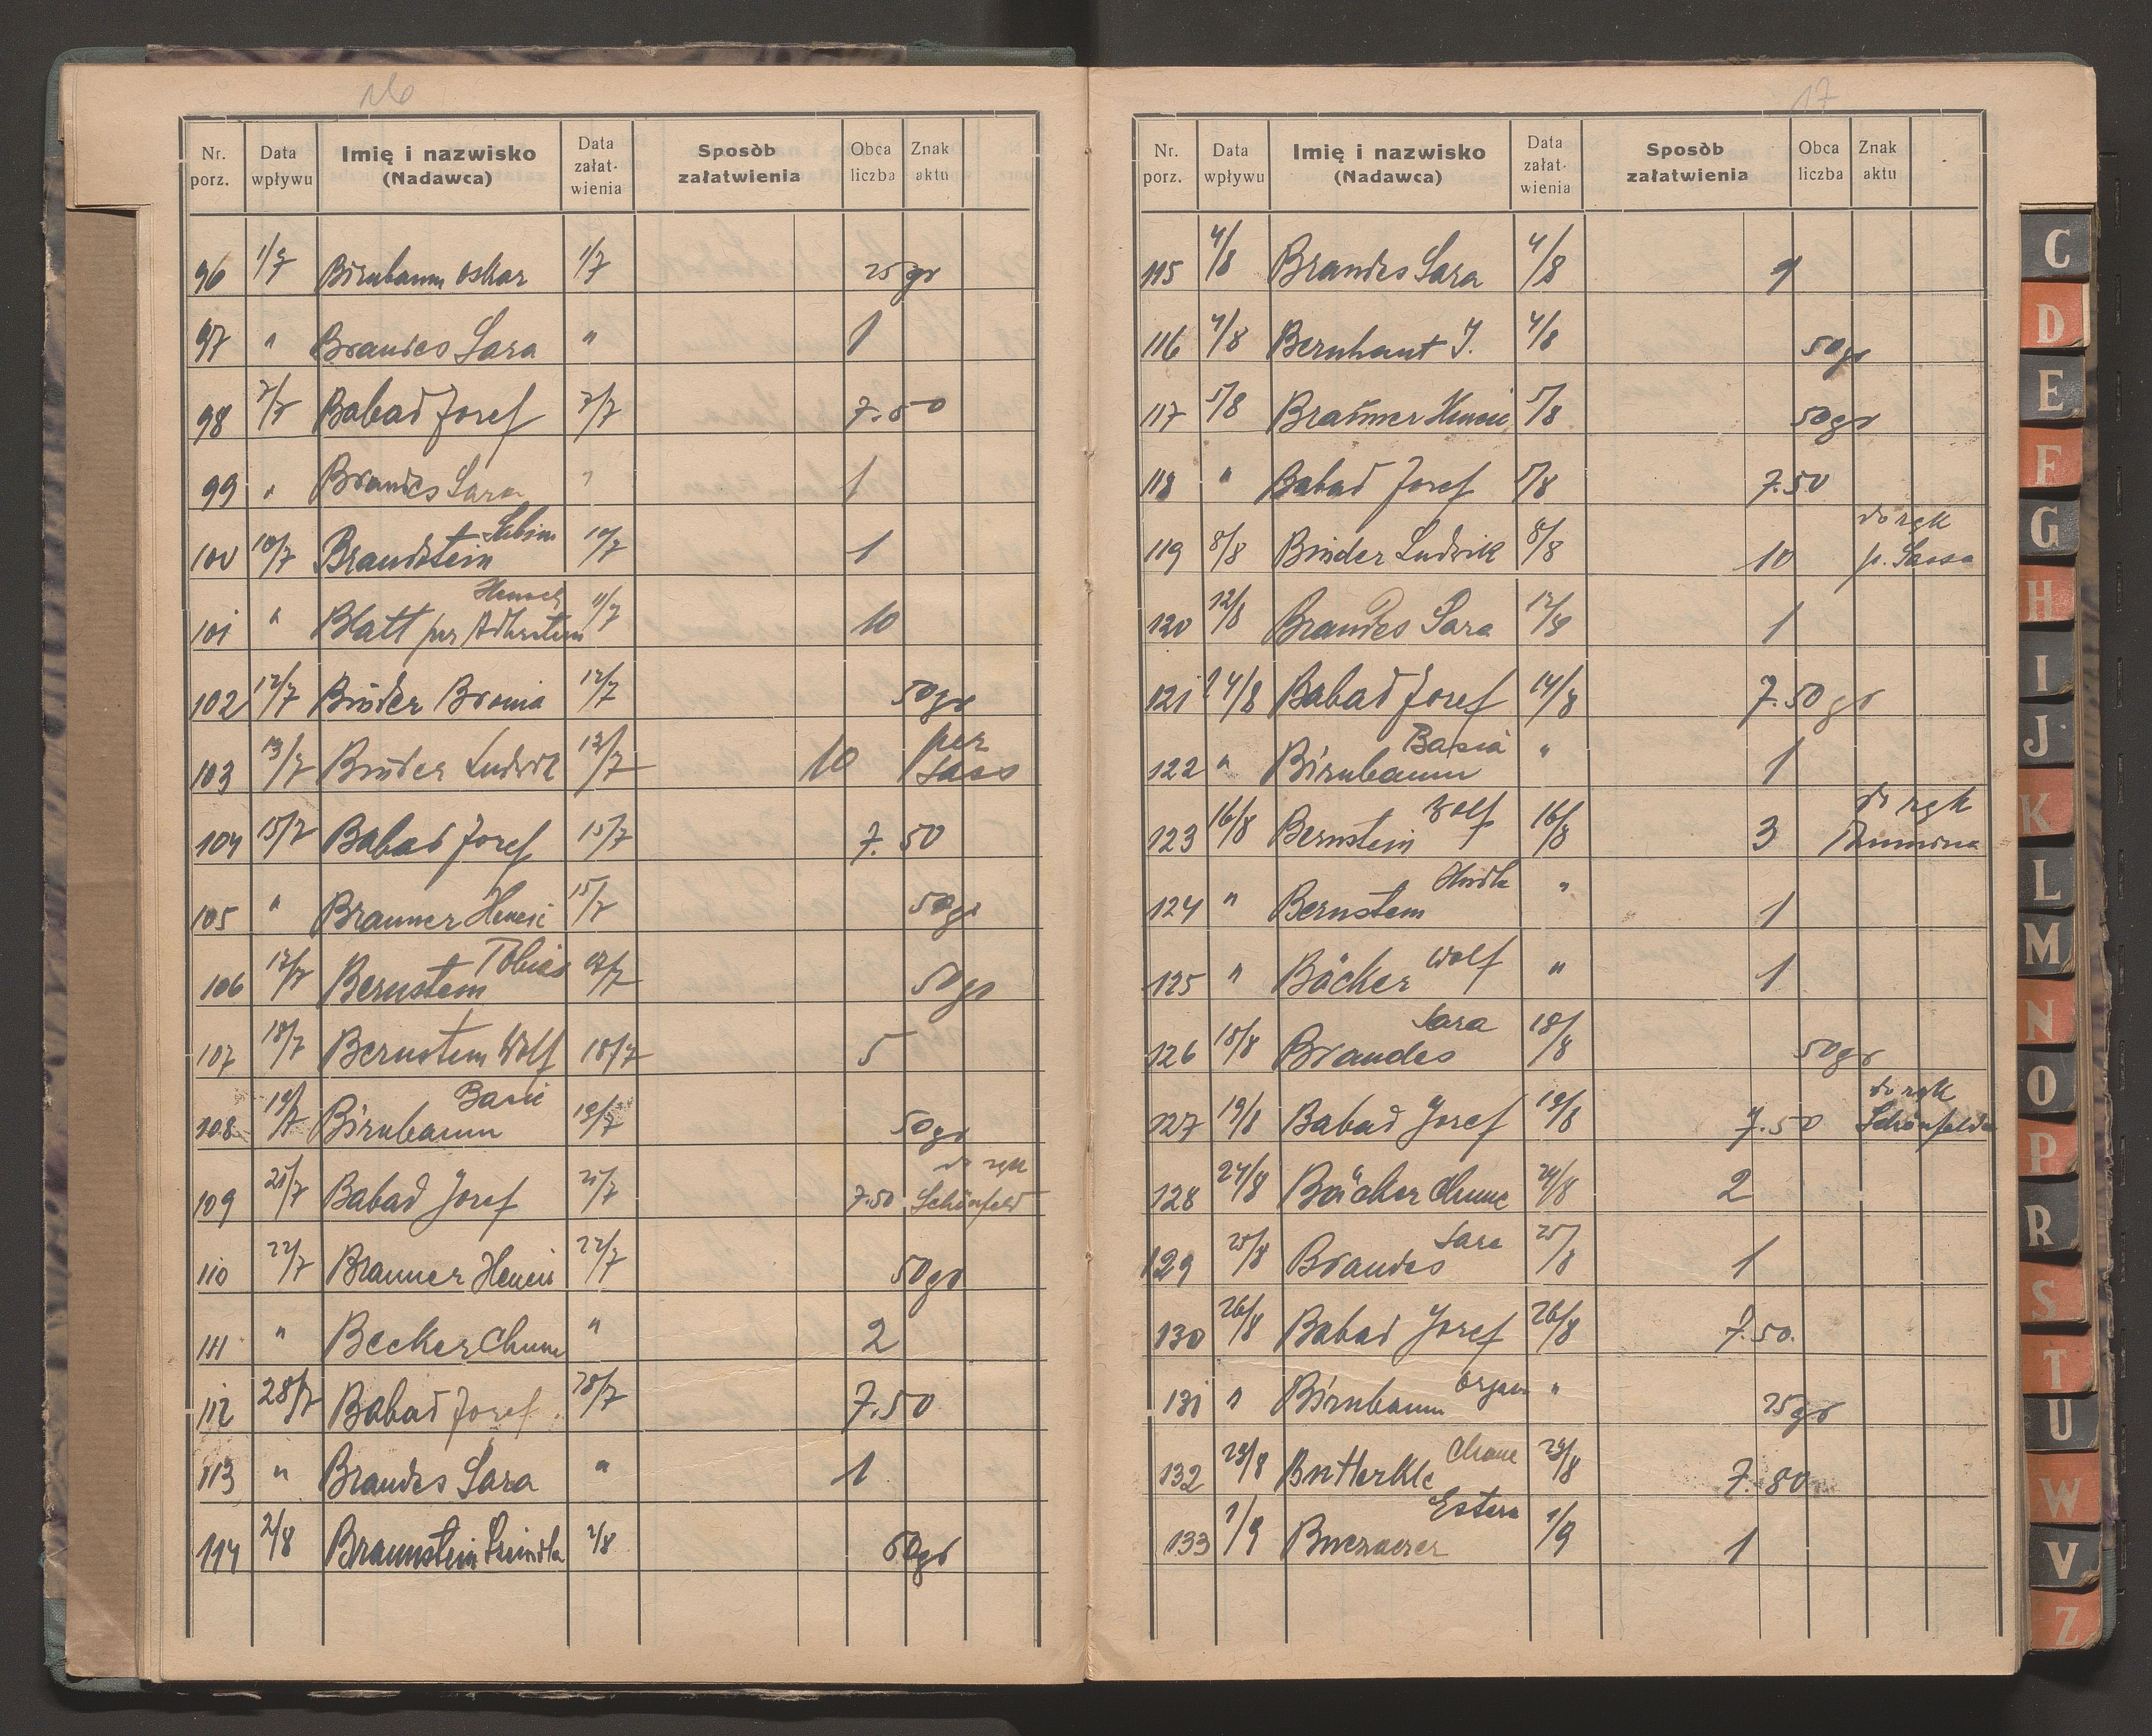 16
Nr. porz. Data wpływu Imię i nazwisko (Nadawca) Data załat- wienia Sposòb załatwienia Obca liczba Znak aktu
96 1/7 Birnbaum Oskar 1/7 25 gr
97 " Brandes Sara " 1
98 7/7 Babad Josef 7/7 7.50
99 " Brandes Sara " 1
100 10/7 Brandstein Sabina 10/7 1
101 " Blatt per 11/7 10
102 12/7 Binder Bronia 12/7 50gr
103 13/7 Binder Ludwik 13/7 10 per Sass
104 15/7 Babad Josef 15/7 7.50
105 " Branner Heneni 15/7 50gr
106 17/7 Bernstein Tobias 17/7 50gr
107 18/7 Bernstein Wolf 18/7 5
108 19/7 Birnbaum Basia 19/7 50gr
109 21/7 Babad Josef 21/7 7.50 do rąk Schönfeld
110 22/7 Branner 22/7 50gr
111 " Becker Chune " 2
112 28/7 Babad Josef 28/7 7.50
113 " Brandes Sara " 1
114 2/8 Braunstein 2/8 50gr
17
Nr. porz. Data wpływu Imię i nazwisko (Nadawca) Data załat- wienia Sposòb załatwienia Obca liczba Znak aktu
115 4/8 Brandes Sara 4/8 1
116 4/8 Bernhaut J. 4/8 50gr
117 5/8 Branner 5/8 50gr
118 " Babad Josef 5/8 7.50
119 8/8 Binder Ludwik 8/8 10 do rąk p. Sassa
120 12/8 Brandes Sara 12/8 1
121 14/8 Babad Josef 14/8 7.50 gr
122 " Birnbaum Basia " 1
123 16/8 Bernstein Wolf 16/8 3 do rąk
124 " Bernstein Hindla " 1
125 " Bäcker Wolf " 1
126 18/8 Brandes Sara 18/8 50gr
127 19/8 Babad Josef 19/8 7.50 do rąk Schönfelda
128 24/8 Bäcker Chune 24/8 2
129 25/8 Brandes Sara 25/8 1
130 26/8 Babad Josef 26/8 7.50.
131 " Birnbaum " 25gr
132 29/8 Butterkle Chane 29/8 7.80
133 1/9 Buczaczer Estera 1/9 1
C
D
E
F
G
H
I
J
K
L
M
N
O
P
R
S
T
U
W
V
Z